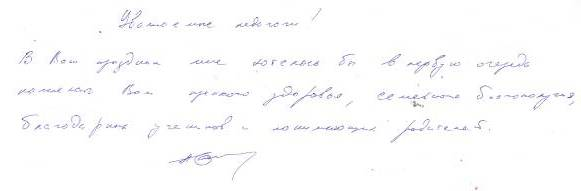 Уважаемые педагоги!
В Ваш праздник мне хотелось бы в первую очередь
пожелать Вам крепкого здоровья, семейного благополучия,
благодарных учеников и понимающих родителей.